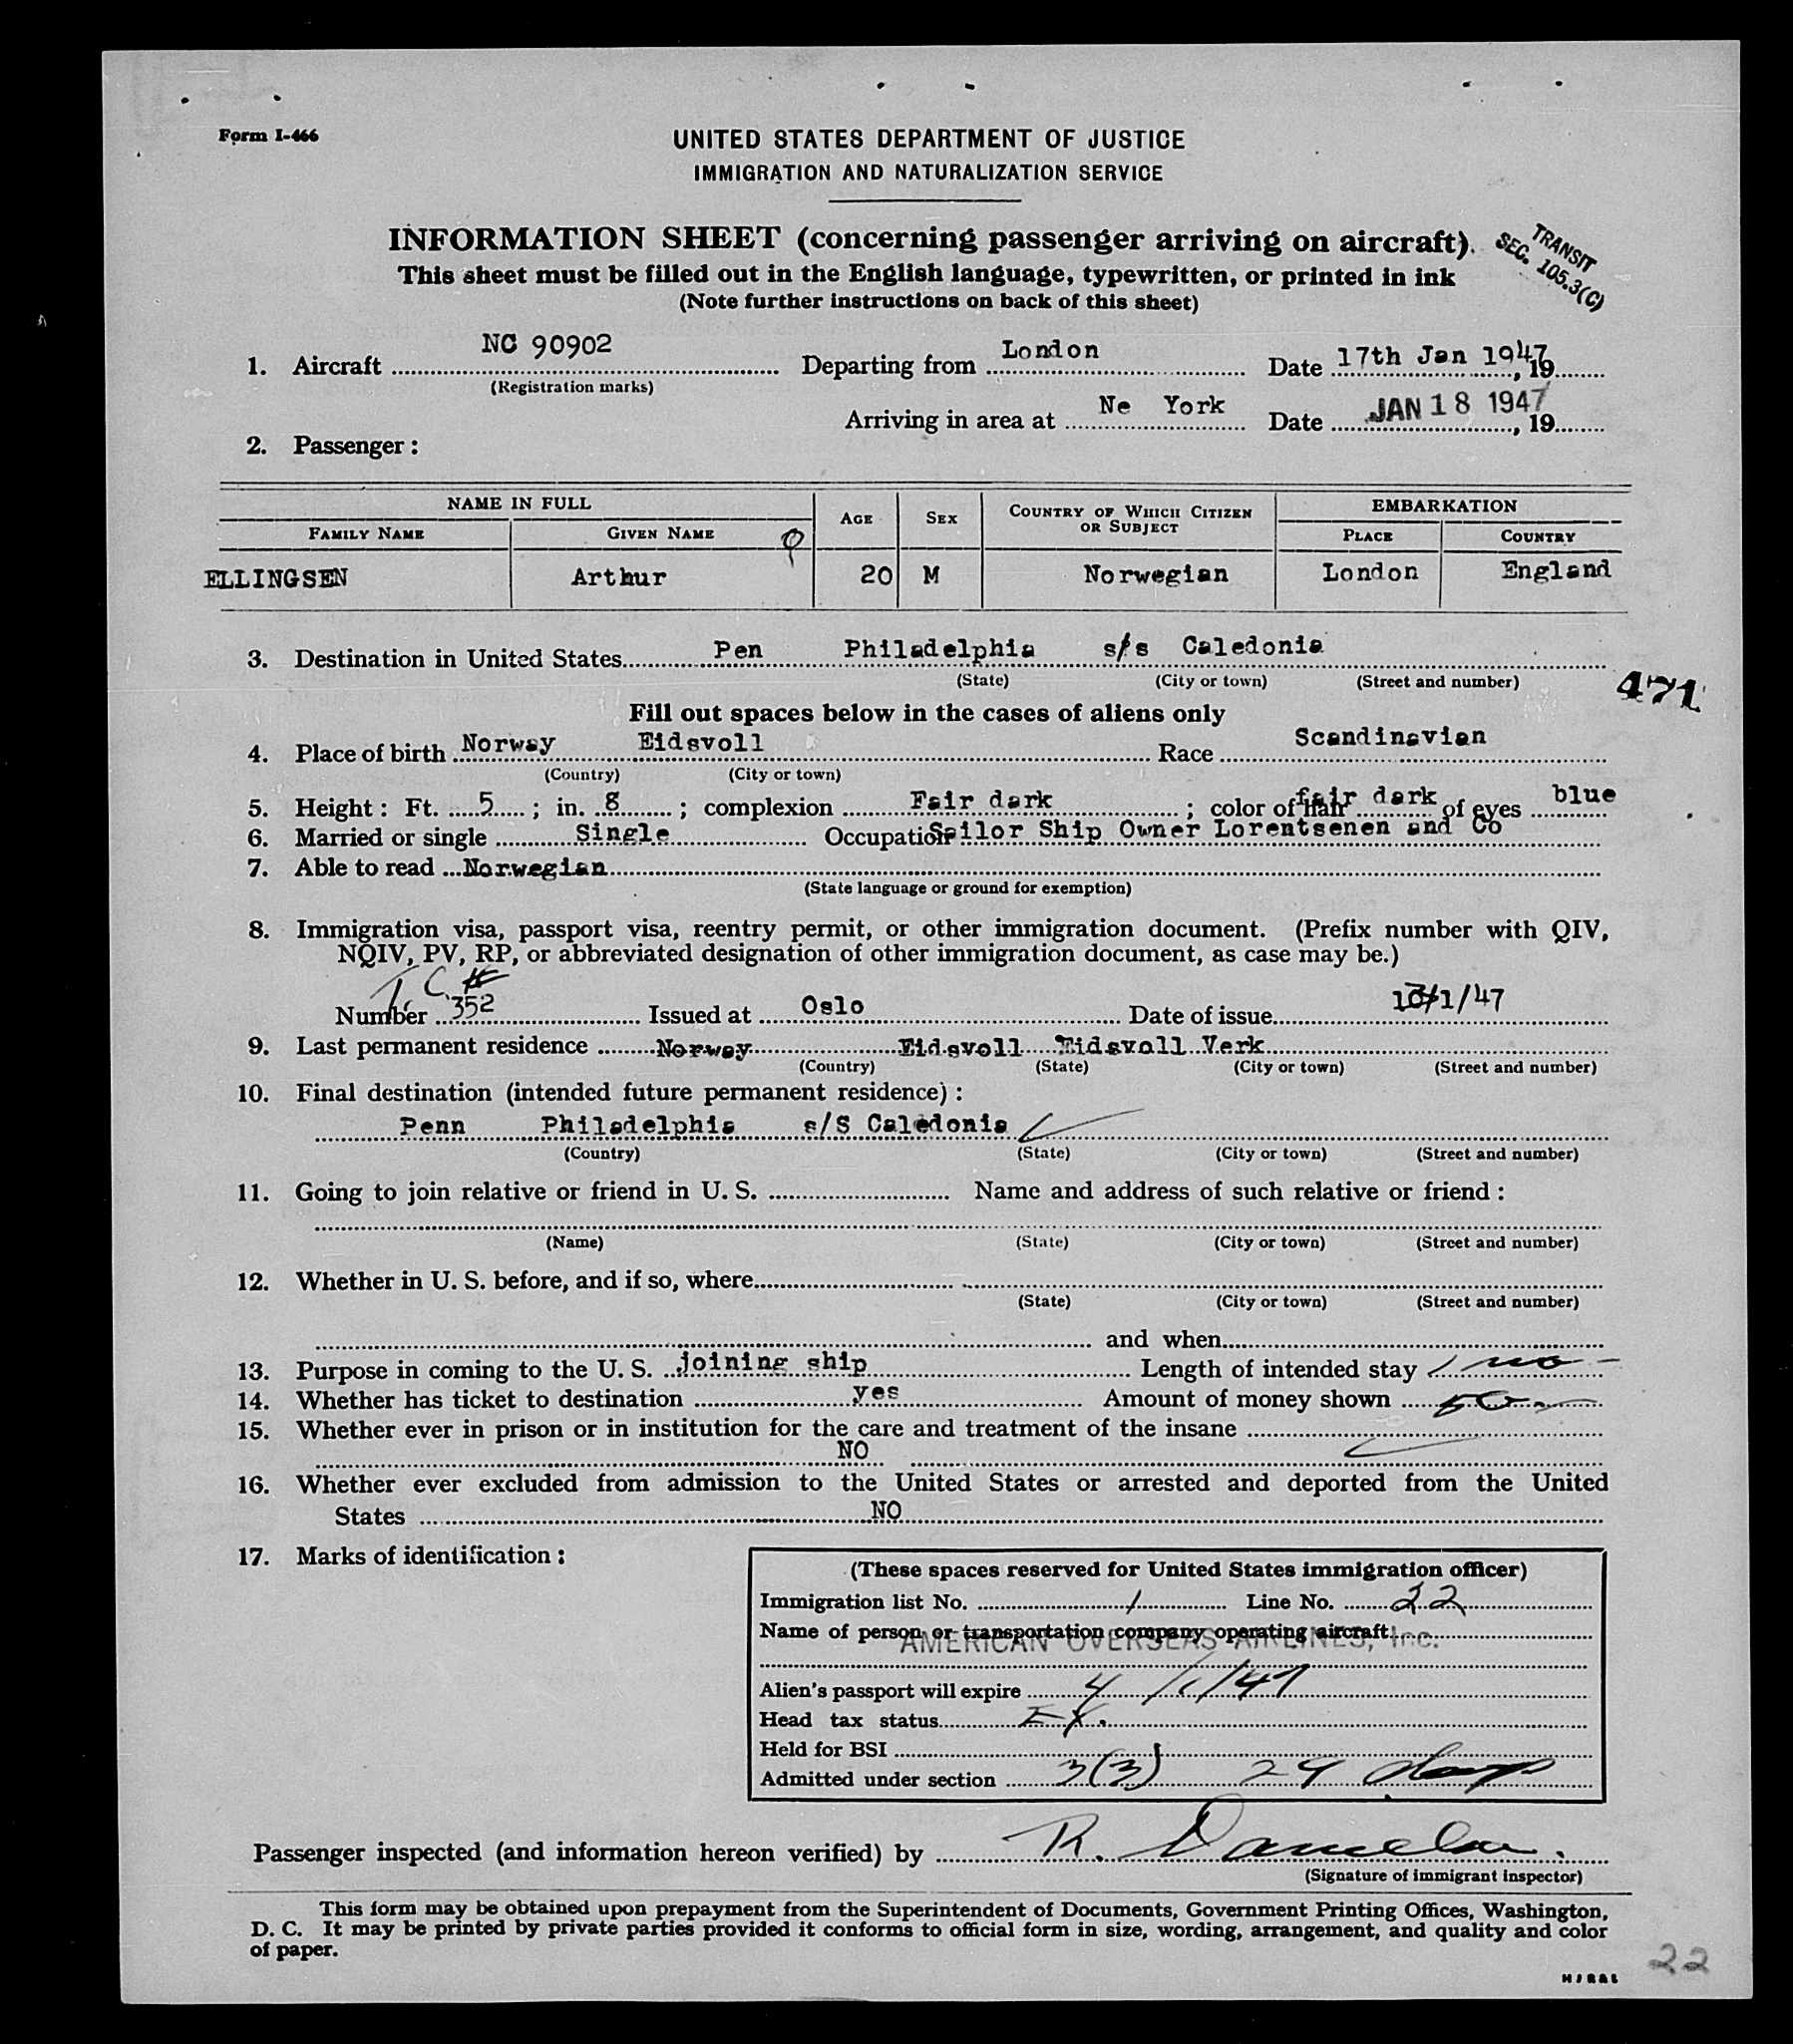 Form I-466
UNITED STATES DEPARTMENT OF JUSTICE
IMMIGRATION AND NATURALIZATION SERVICE
INFORMATION SHEET (concerning passenger arriving on aircraft).
TRANSIT
SEC. 105.3(C)
This sheet must be filled out in the English language, typewritten, or printed in ink
(Note further instructions on back of this sheet)
1. Aircraft NC 90902 Departing from London Date 17th Jan 1947, 19
(Registration marks)
Arriving in area at Ne York Date JAN 18 1947, 19
2. Passenger:
NAME IN FULL AGE SEX COUNTRY OF WHICH CITIZEN OR SUBJECT EMBARKATION
FAMILY NAME GIVEN NAME PLACE COUNTRY
ELLINGSEN Arthur 20 M Norwegian London England
3. Destination in United States Pen Philadelphia s/s Caledonia
(State) (City or town) (Street and number)
471
Fill out spaces below in the cases of aliens only
4. Place of birth Norway Eidsvoll Race Scandinavian
(Country) (City or town)
5. Height: Ft. 5; in. 8; complexion Fair dark; color of hair fair dark of eyes blue
6. Married or single Single Occupation Sailor Ship Owner Lorentsenen and Co
7. Able to read Norwegian
(State language or ground for exemption)
8. Immigration visa, passport visa, reentry permit, or other immigration document. (Prefix number with QIV,
NQIV, PV, RP, or abbreviated designation of other immigration document, as case may be.)
T. C. #
Number 352 Issued at Oslo Date of issue /1/47
9. Last permanent residence Norway Eidsvoll Eidsvoll Verk
(Country) (State) (City or town) (Street and number)
10. Final destination (intended future permanent residence):
Penn Philadelphia s/S Caledonia
(Country) (State) (City or town) (Street and number)
11. Going to join relative or friend in U. S. Name and address of such relative or friend:
(Name) (State) (City or town) (Street and number)
12. Whether in U. S. before, and if so, where
(State) (City or town) (Street and number)
and when
13. Purpose in coming to the U. S. joining ship Length of intended stay 1 mo
14. Whether has ticket to destination yes Amount of money shown 50.
15. Whether ever in prison or in institution for the care and treatment of the insane
NO
16. Whether ever excluded from admission to the United States or arrested and deported from the United
States NO
17. Marks of identification:
(These spaces reserved for United States immigration officer)
Immigration list No. 1 Line No. 22
Name of person or transportation company operating aircraft
AMERICAN OVERSEAS AIRLINES, Inc.
Alien's passport will expire 4/1/47
Head tax status Ex.
Held for BSI
Admitted under section 3(3) 29 days
Passenger inspected (and information hereon verified) by R.
(Signature of immigrant inspector)
This form may be obtained upon prepayment from the Superintendent of Documents, Government Printing Offices, Washington,
D. C. It may be printed by private parties provided it conforms to official form in size, wording, arrangement, and quality and color
of paper.
22